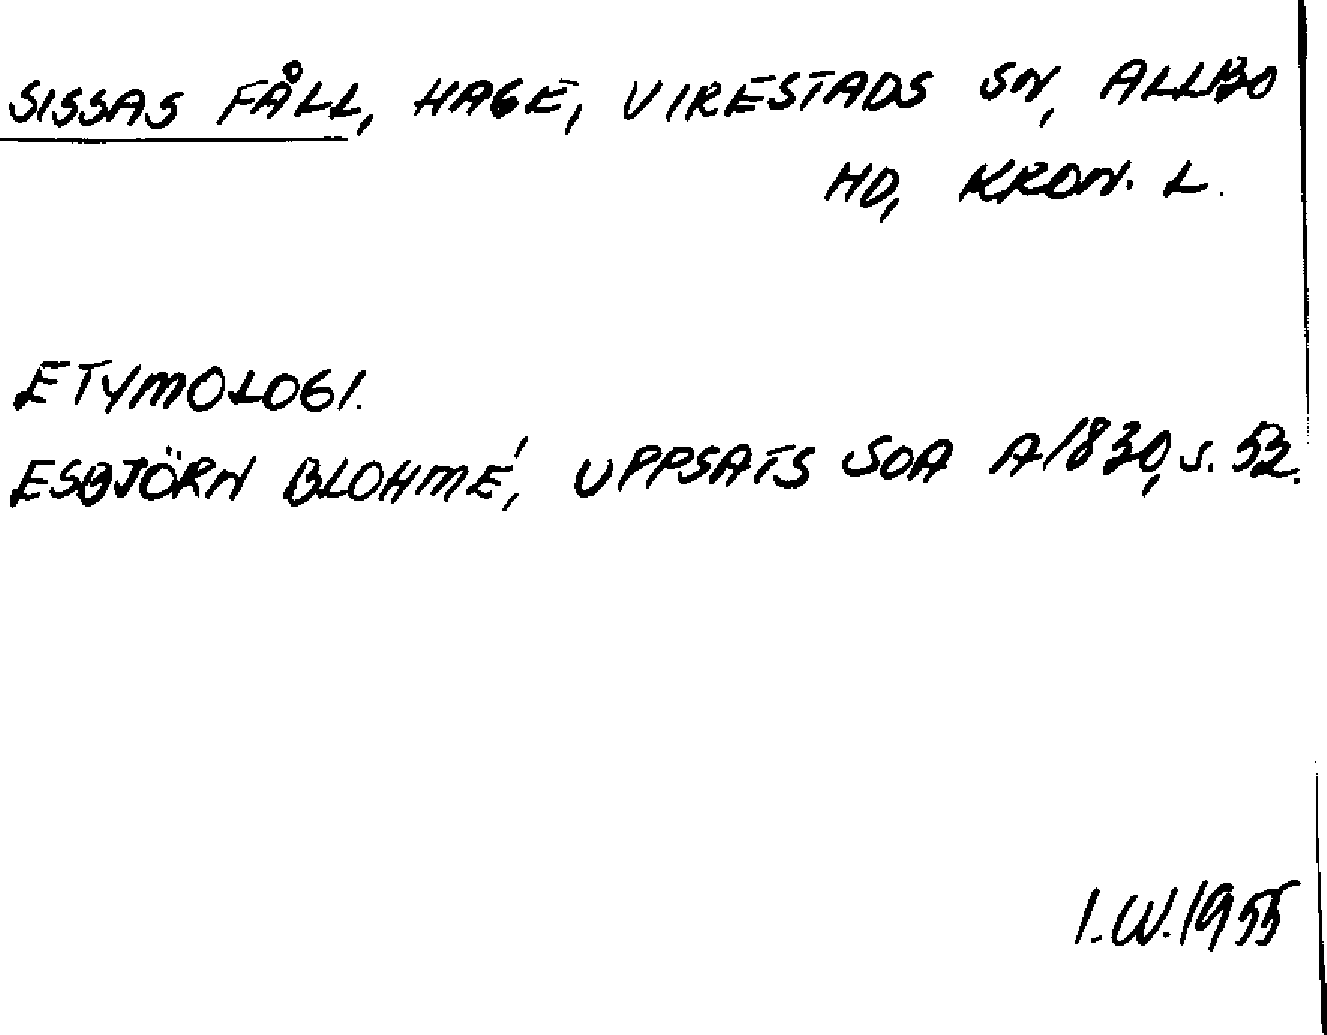 SISSAS FÅLL, HAGE, VIRESTADS SN, ALLBO
HD, KRON. L.
ETYMOLOGI.
ESBJÖRN BLOHMÉ, UPPSATS SOA A1830, S. 52.
I.W.1955